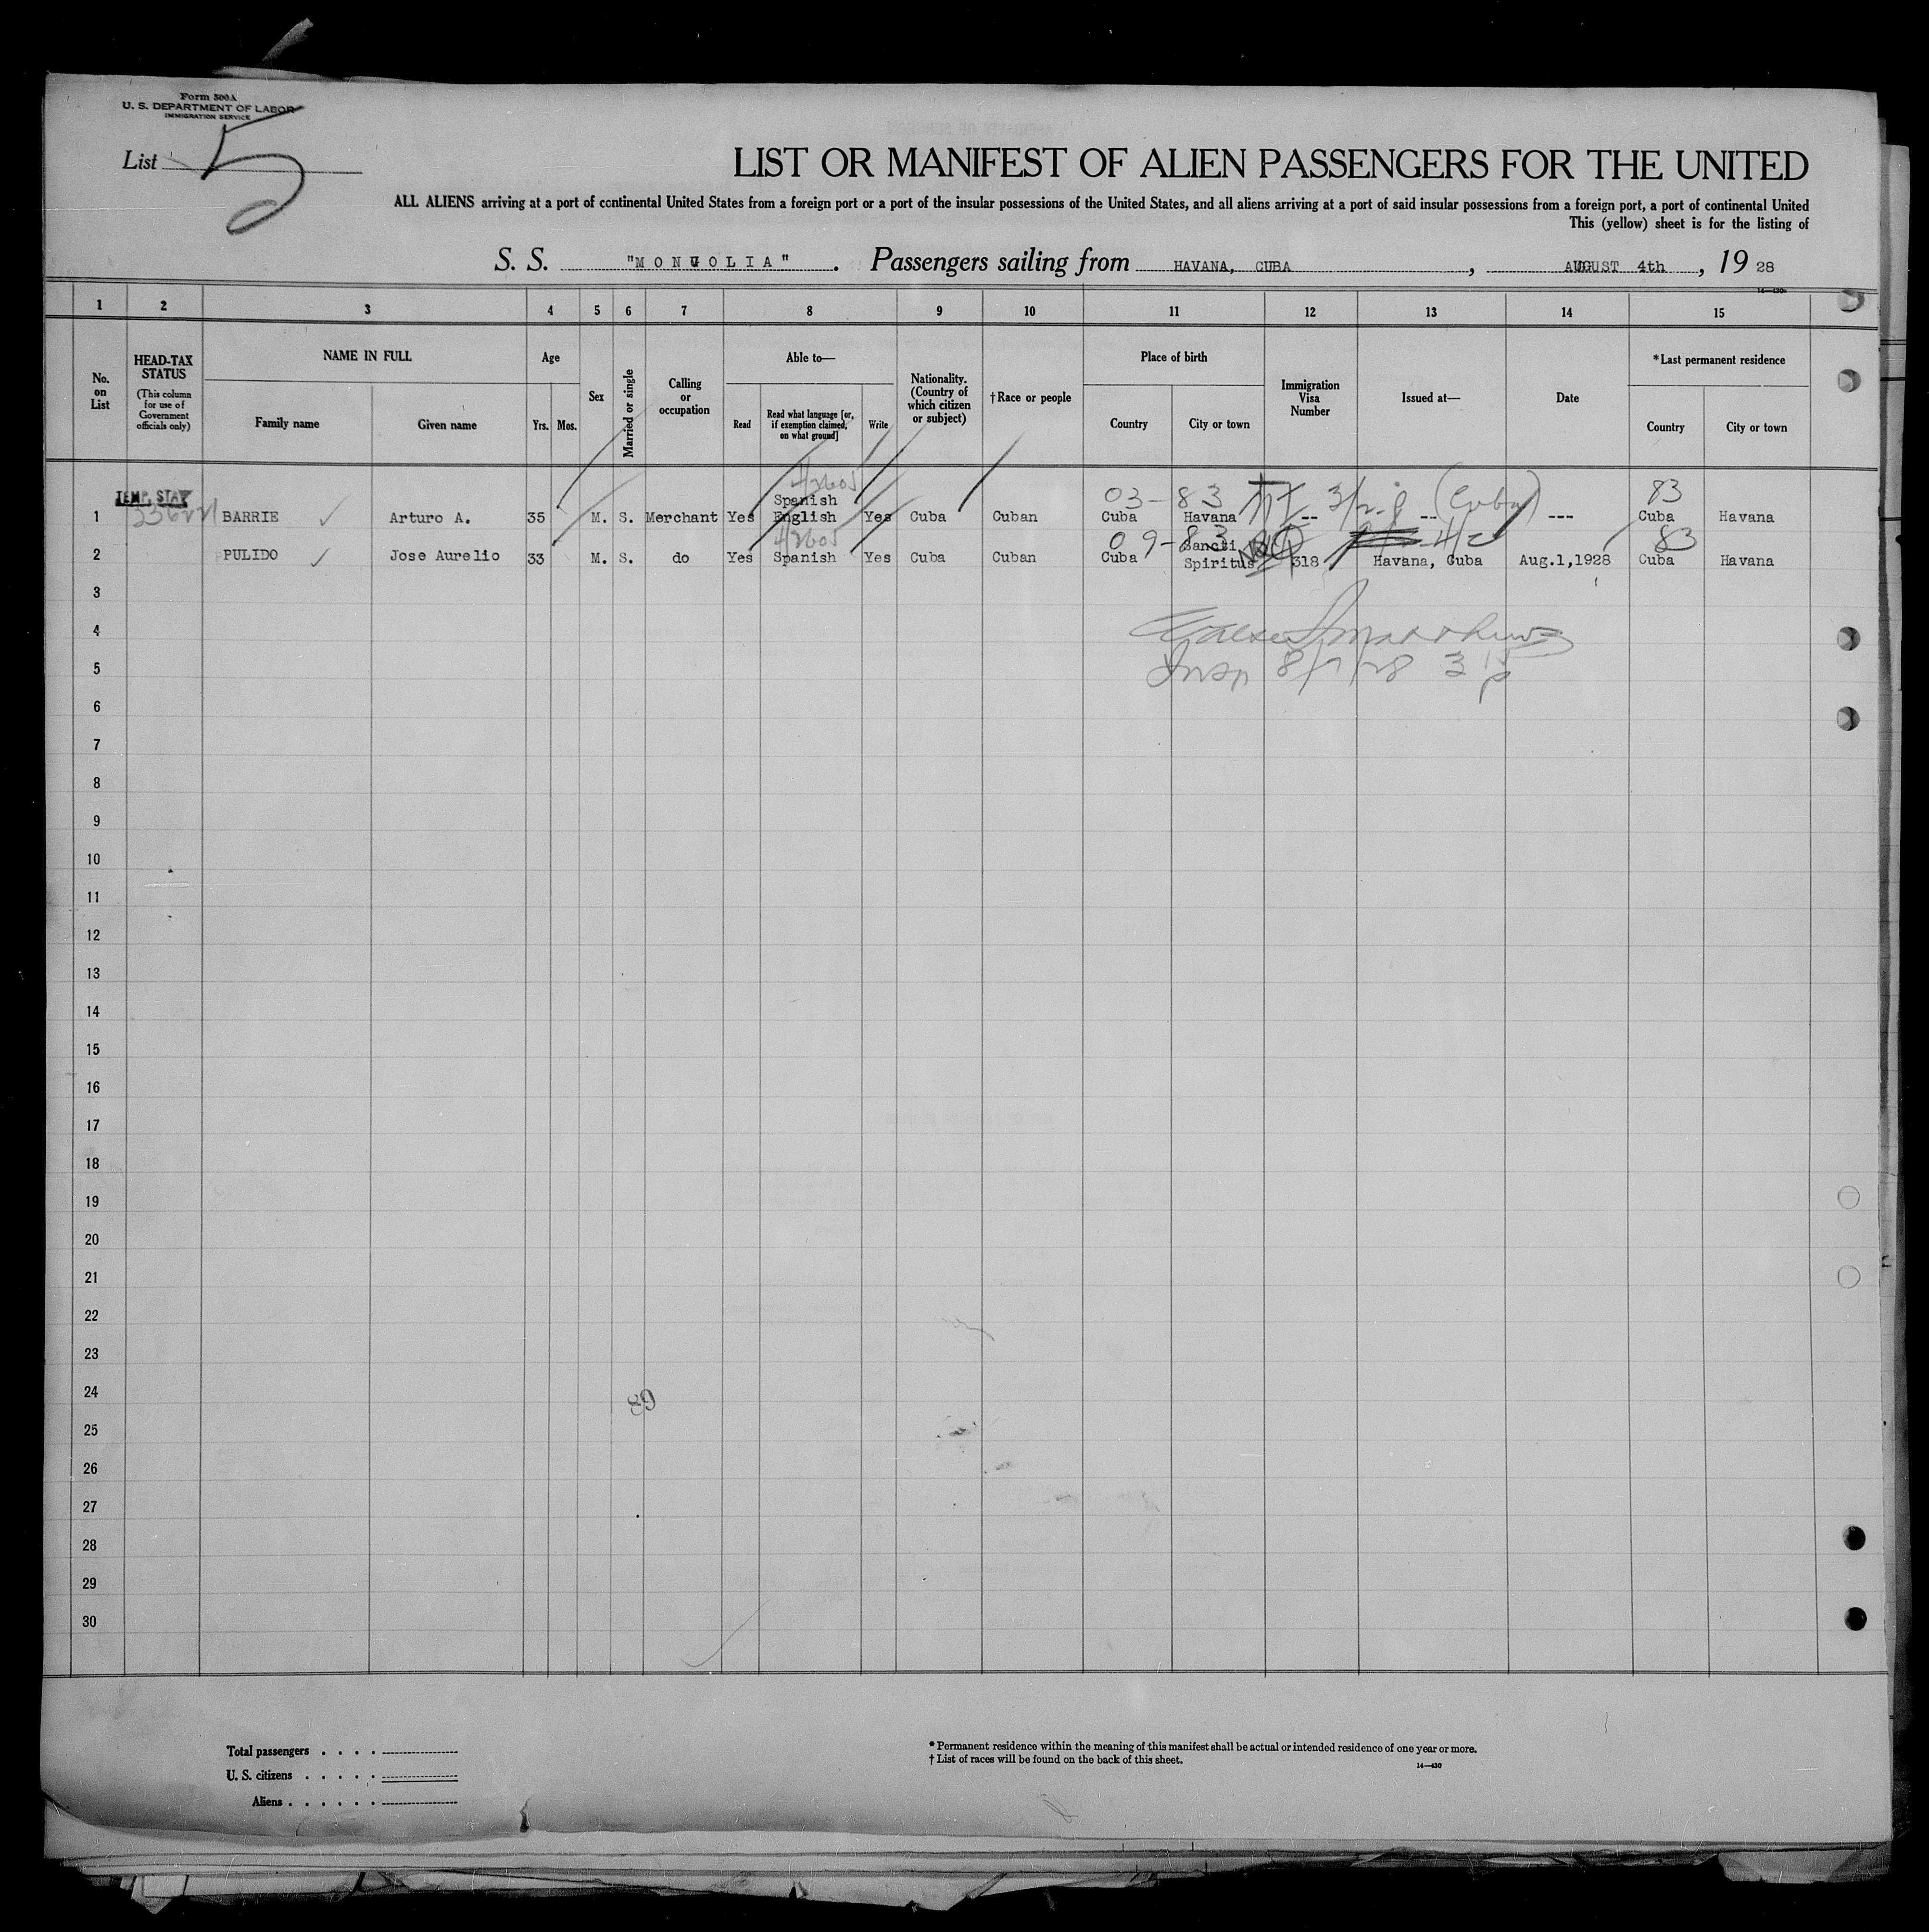 Form 500A
U. S. DEPARTMENT OF LABOR
IMMIGRATION SERVICE
List 5
LIST OR MANIFEST OF ALIEN PASSENGERS FOR THE UNITED
ALL ALIENS arriving at a port of continental United States from a foreign port or a port of the insular possessions of the United States, and all aliens arriving at a port of said insular possessions from a foreign port, a port of continental United
This (yellow) sheet is for the listing of
S. S. "MONGOLIA". Passengers sailing from HAVANA, CUBA, AUGUST 4th, 19 28
1 2 3 4 5 6 7 8 9 10 11 12 13 14 15
No. on List
HEAD-TAX STATUS
(This column for use of Government officials only)
NAME IN FULL
Family name
Given name
Age
Yrs.
Mos.
Sex
Married or single
Calling or occupation
Able to—
Read
Read what language [or, if exemption claimed, on what ground]
Write
Nationality. (Country of which citizen or subject)
†Race or people
Place of birth
Country
City or town
Immigration Visa Number
Issued at—
Date
*Last permanent residence
Country
City or town
4/2605
TEMP. STAY
Spanish
03-83 3/ (Cuba) 83
1 BARRIE Arturo A. 35 M. S. Merchant Yes English Yes Cuba Cuban Cuba Havana -- -- --- Cuba Havana
4/2605 09-83 83
Sancti
2 PULIDO Jose Aurelio 33 M. S. do Yes Spanish Yes Cuba Cuban Cuba Spiritus 318 Havana, Cuba Aug.1,1928 Cuba Havana
3
4
5 Insp 8/7/28 3 15 p
6
7
8
9
10
11
12
13
14
15
16
17
18
19
20
21
22
23
24
89
25
26
27
28
29
30
Total passengers . . . .
U. S. citizens . . . . .
Aliens . . . . . .
* Permanent residence within the meaning of this manifest shall be actual or intended residence of one year or more.
† List of races will be found on the back of this sheet.
14—430